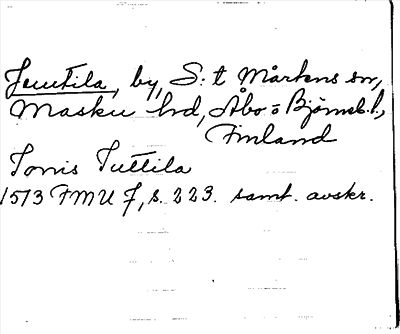 Juutila, by, S:t Mårtens sn,
Masku hd, Åbo o Björneb. l.,
Finland
Tonis Tuttila
1513 FMU 7, s. 223. samt. avskr.